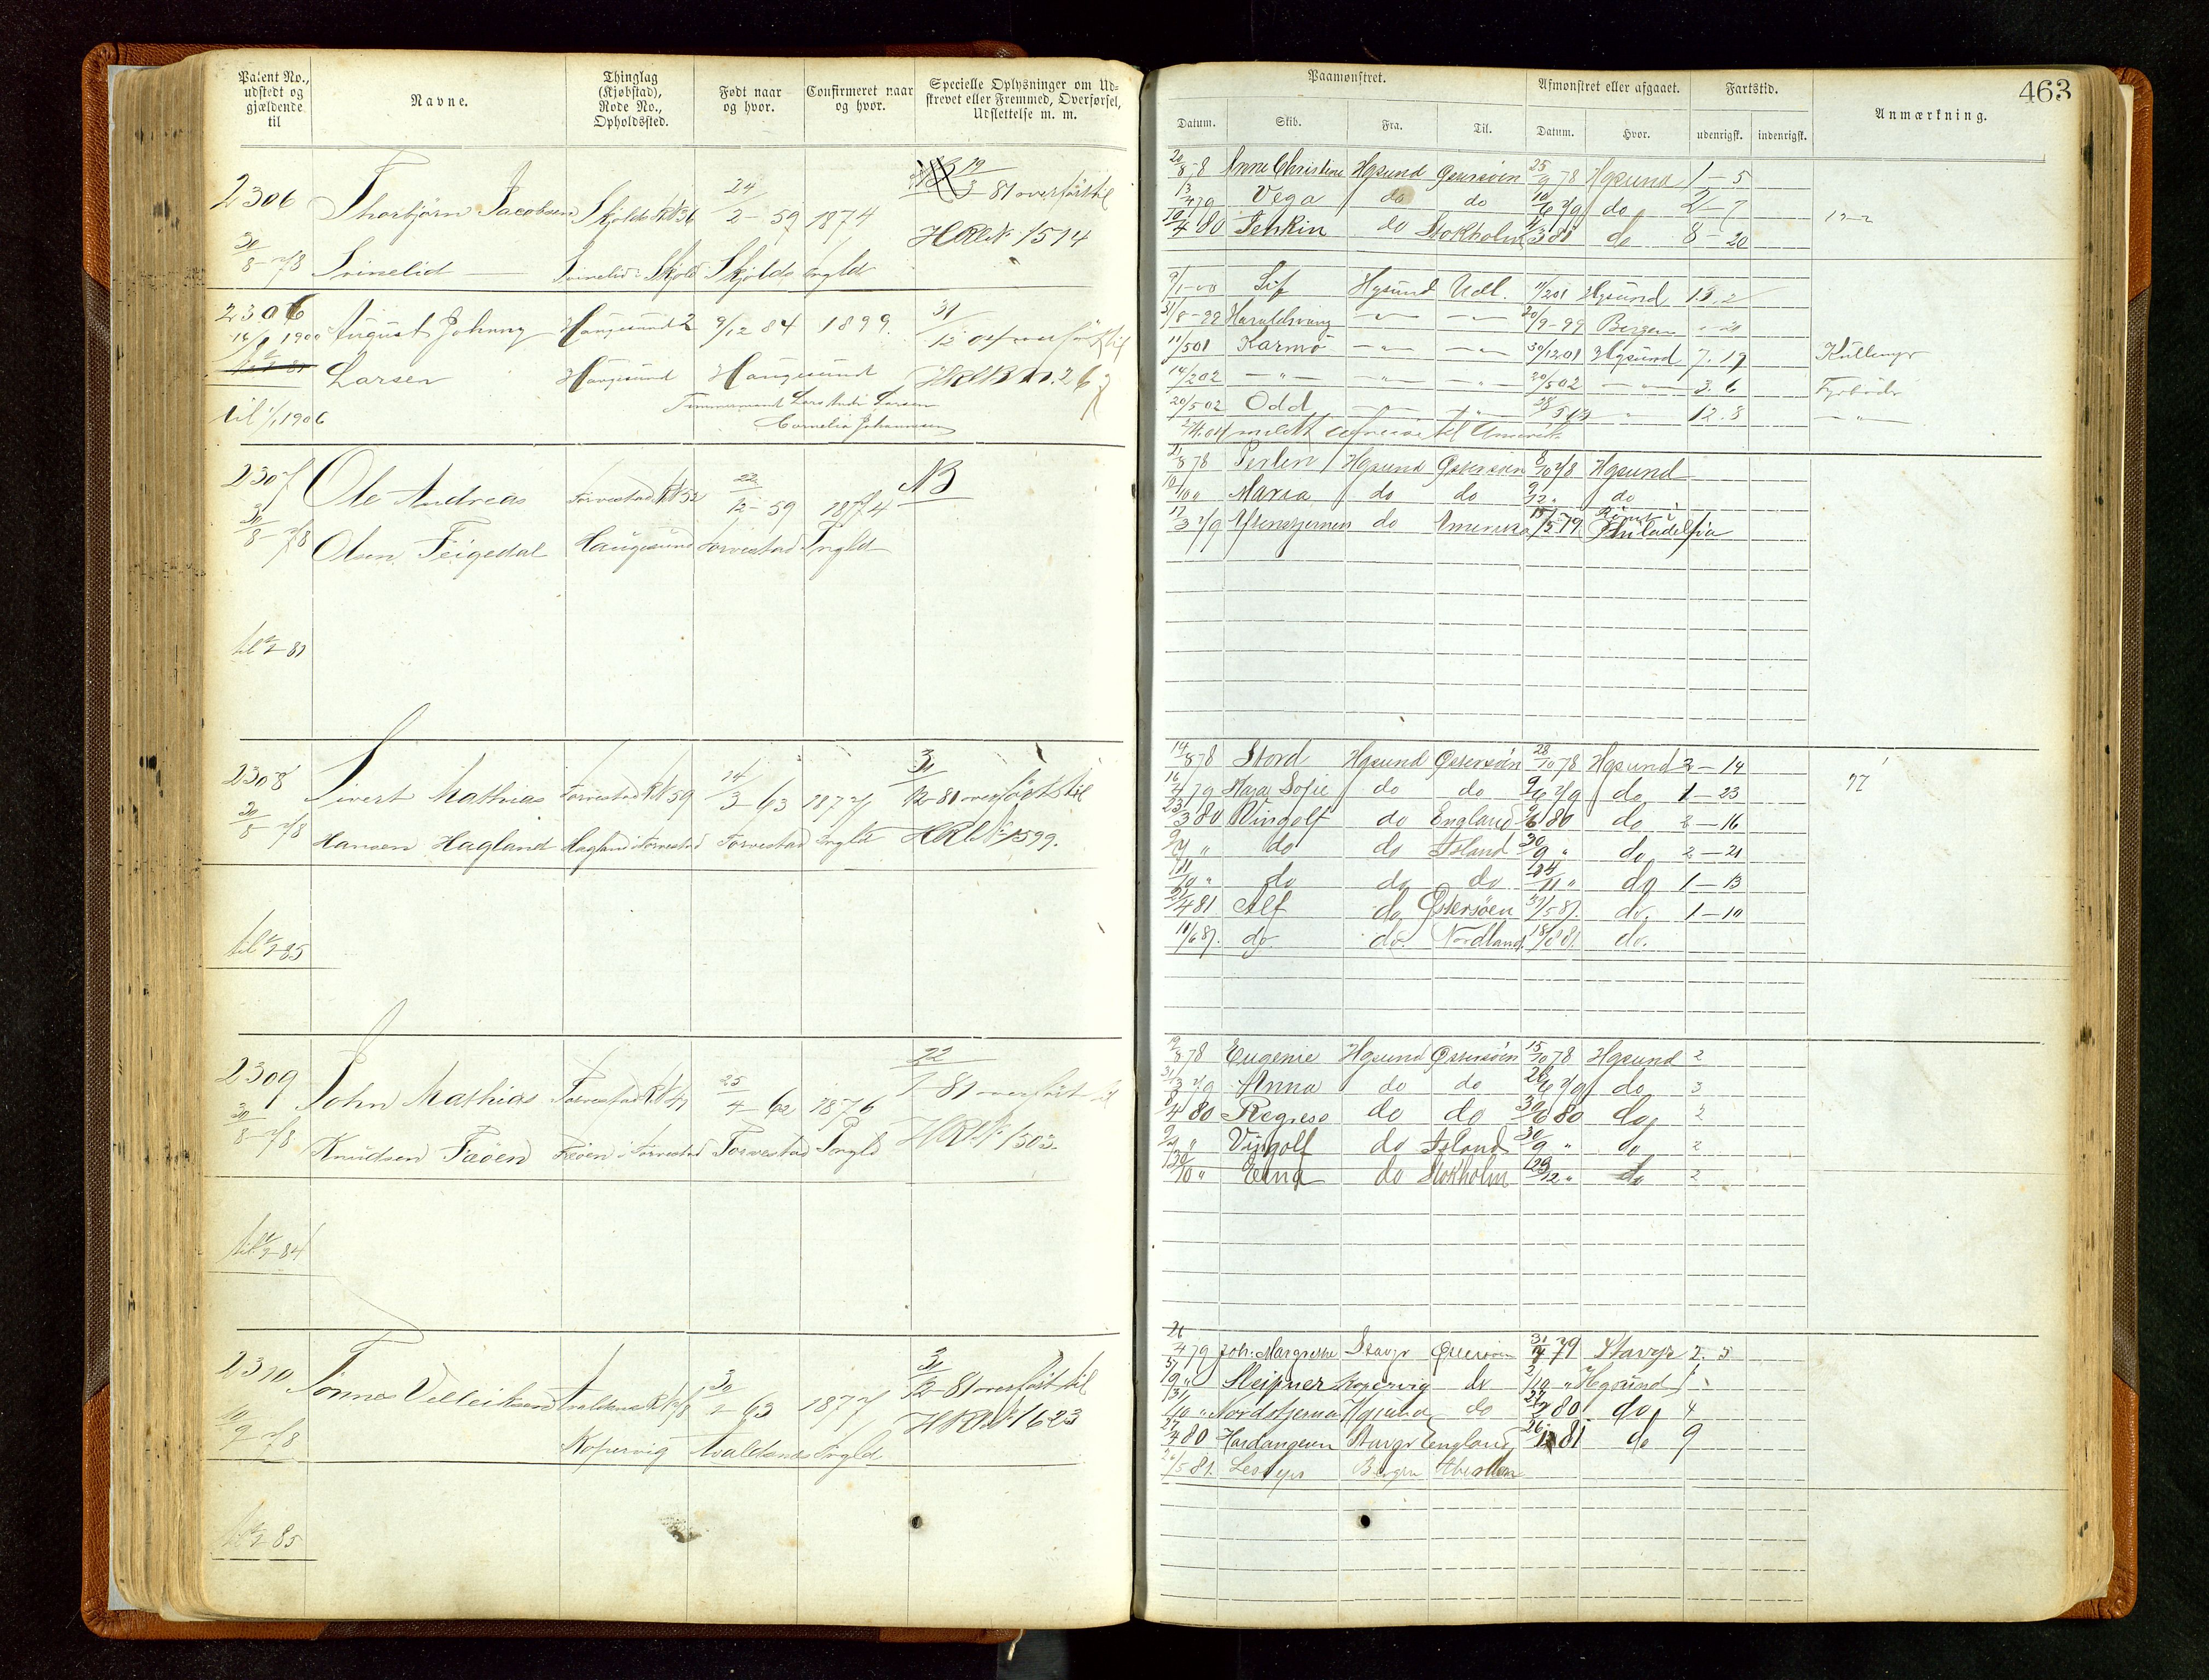 Patent No., udstedt og gjældende til
Navne.
Thinglag (Kjøbstad), Rode No., Opholdssted.
Født naar og hvor.
Confirmeret naar og hvor.
Specielle Oplysninger om Udskrevet eller Fremmed, Overførsel, Udslettelse m. m.
2306 Thorbjörn Jacobsen Skjolds RN 36 24/2-59 1874 19/3 81 overfört til
30/8-78 Svinelid Svinelid i Skjold Skjolds Ingld HRlN 1514
2306
1900 August Johnny Haugesund 2 9/12 84 1899. 31/12 04 overfört til
Larsen Haugesund Haugesund
til 1/1 1906 Tømmermand Lars Larsen
Cornelia Johannesen
2307 Ole Andreas Torvestad RN 52 22/12-59 1874 NB
30/8-78 Olsen Feigedal Haugesund Torvestad Ingld
til 81
2308 Sivert Mathias Torvestad RN 59 14/3 63 1877 31/12-81 overfört til
30/8-78 Hansen Hagland Hagland i Torvestad Torvestad Ingld HRlN 1599.
til 85
2309 John Mathias Torvestad RN 41 25/4-62 1876 22/1-81 overfört til
30/8-78 Knudsen Fæöen Fæöen i Torvestad Torvestad Ingld HRlN 1303.
til 84
2310 Tönnes Velleiksen Avaldsnæs 30/1-63 1877 31/12-81 overfört til
10/9-78 Kopervig Avaldsnæs Ingld HRlN 1623
85
463
Paamønstret.
Afmønstret eller afgaaet.
Fartstid.
Anmærkning.
Datum. Skib. Fra. Til. Datum. Hvor. udenrigsk. indenrigsk.
20/8-8 Anne Christine Hgsund Östersöen 25/9 78 Hgsund 1-5
13/4 79 Vega do do 10/6 79 do 2-7
10/4 80 Jenkin do Stokholm 81 do 8-20
9/1-00 Sif Hgsund Udl. 11/2 01 Hgsund 13.2
31/8-99 Haraldsvang -"- -"- 20/9-99 Bergen
11/5 01 Karmö -"- -"- 30/12 01 Hgsund 7.19 Kullempr
14/2 02 -"- -"- -"- 20/5 02 -"- 3.6 Fyrböder
20/5 02 Odd -"- -"- 28/5 03 " 12.8 -"-
meldt afreise til Amerika
21/8 78 Perlen Hgsund Östersöen 8/10 78 Hgsund
10/10 " Maria do do 9/12 " do
17/3 79 Aftenstjernen do Amerika 15/5 79 Römt i Philadelfia
14/8 78 Stord Hgsund Östersöen 28/10 78 Hgsund 2-14
16/4 79 Hara Sofie do do 9/6 79 do 1-23
23/3 80 Vingolf do England 9/6 80 do 2-16
9/7 " do do Island 30/9 " do 2-21
11/10 " do do do 24/11 " do 1-13
21/4 81 Alf do Östersöen 31/5 81. do. 1-10
11/6 81. do. do. Nordland 18/8 81. do.
19/8 78 Eugenie Hgsund Östersöen 15/10 78 Hgsund 2
31/3 79 Anna do do 26/6 79 do 3
8/4 80 Regress do do 30/6 80 do 2
9/7 " Vingolf do Island 30/9 " do 2
13/10 " Edna do Stokholm 29/12 " do 2
26/4 79 Joh: Margrethe Stavgr Östersöen 31/7 79 Stavgr 2. 5
5/9 " Sleipner Kopervig do 2/10 " Hgsund 1
31/10 " Nordstjernen Hgsund do 27/2 80 do 4
27/4 80 Hardangeren Stavgr England 26/1 81 do 9
26/5 81. Bergen